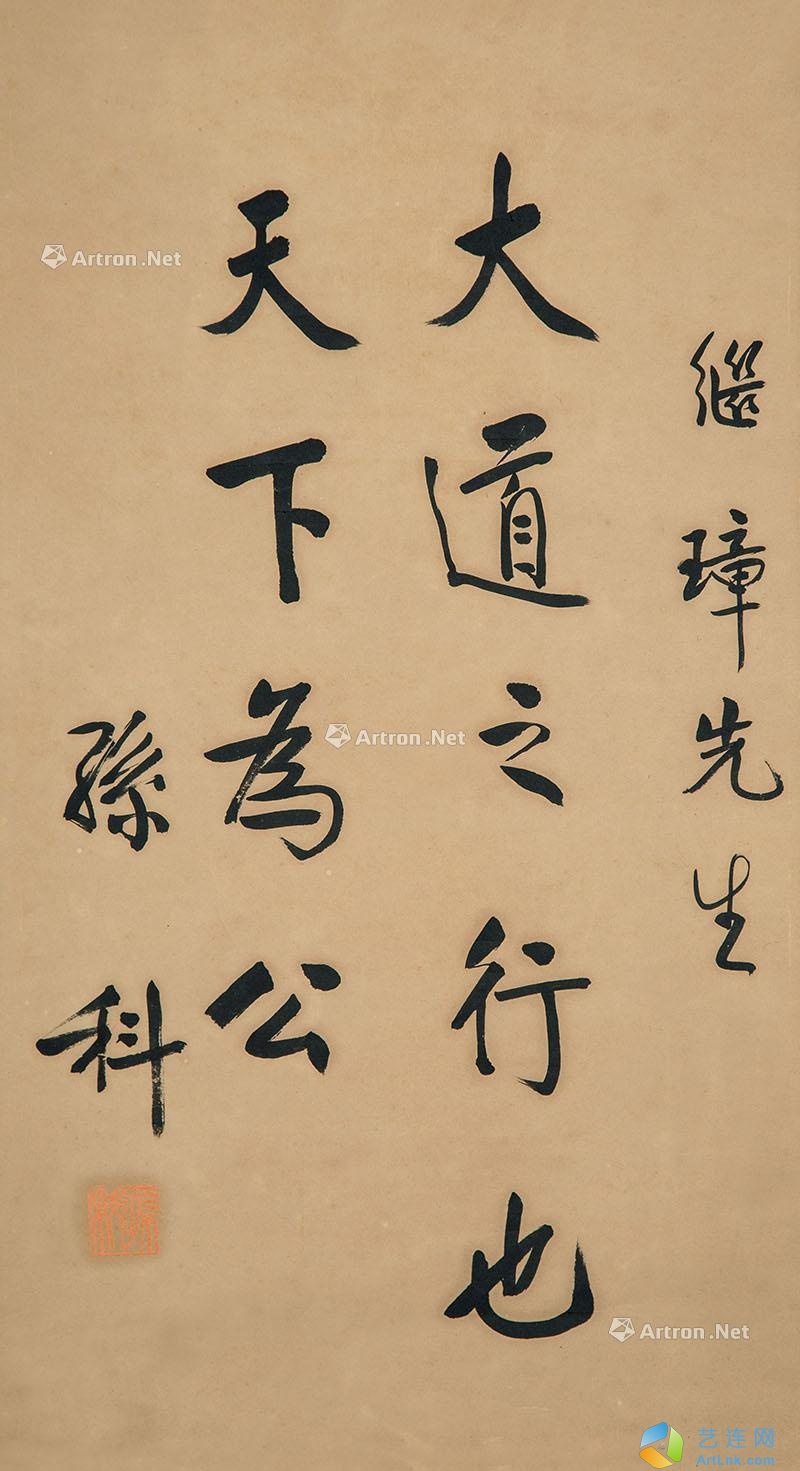 繼璋先生
大道之行也
天下為公
孫科
Artron.Net
Artron.Net
Artron.Net
艺连网
ArtLnk.com